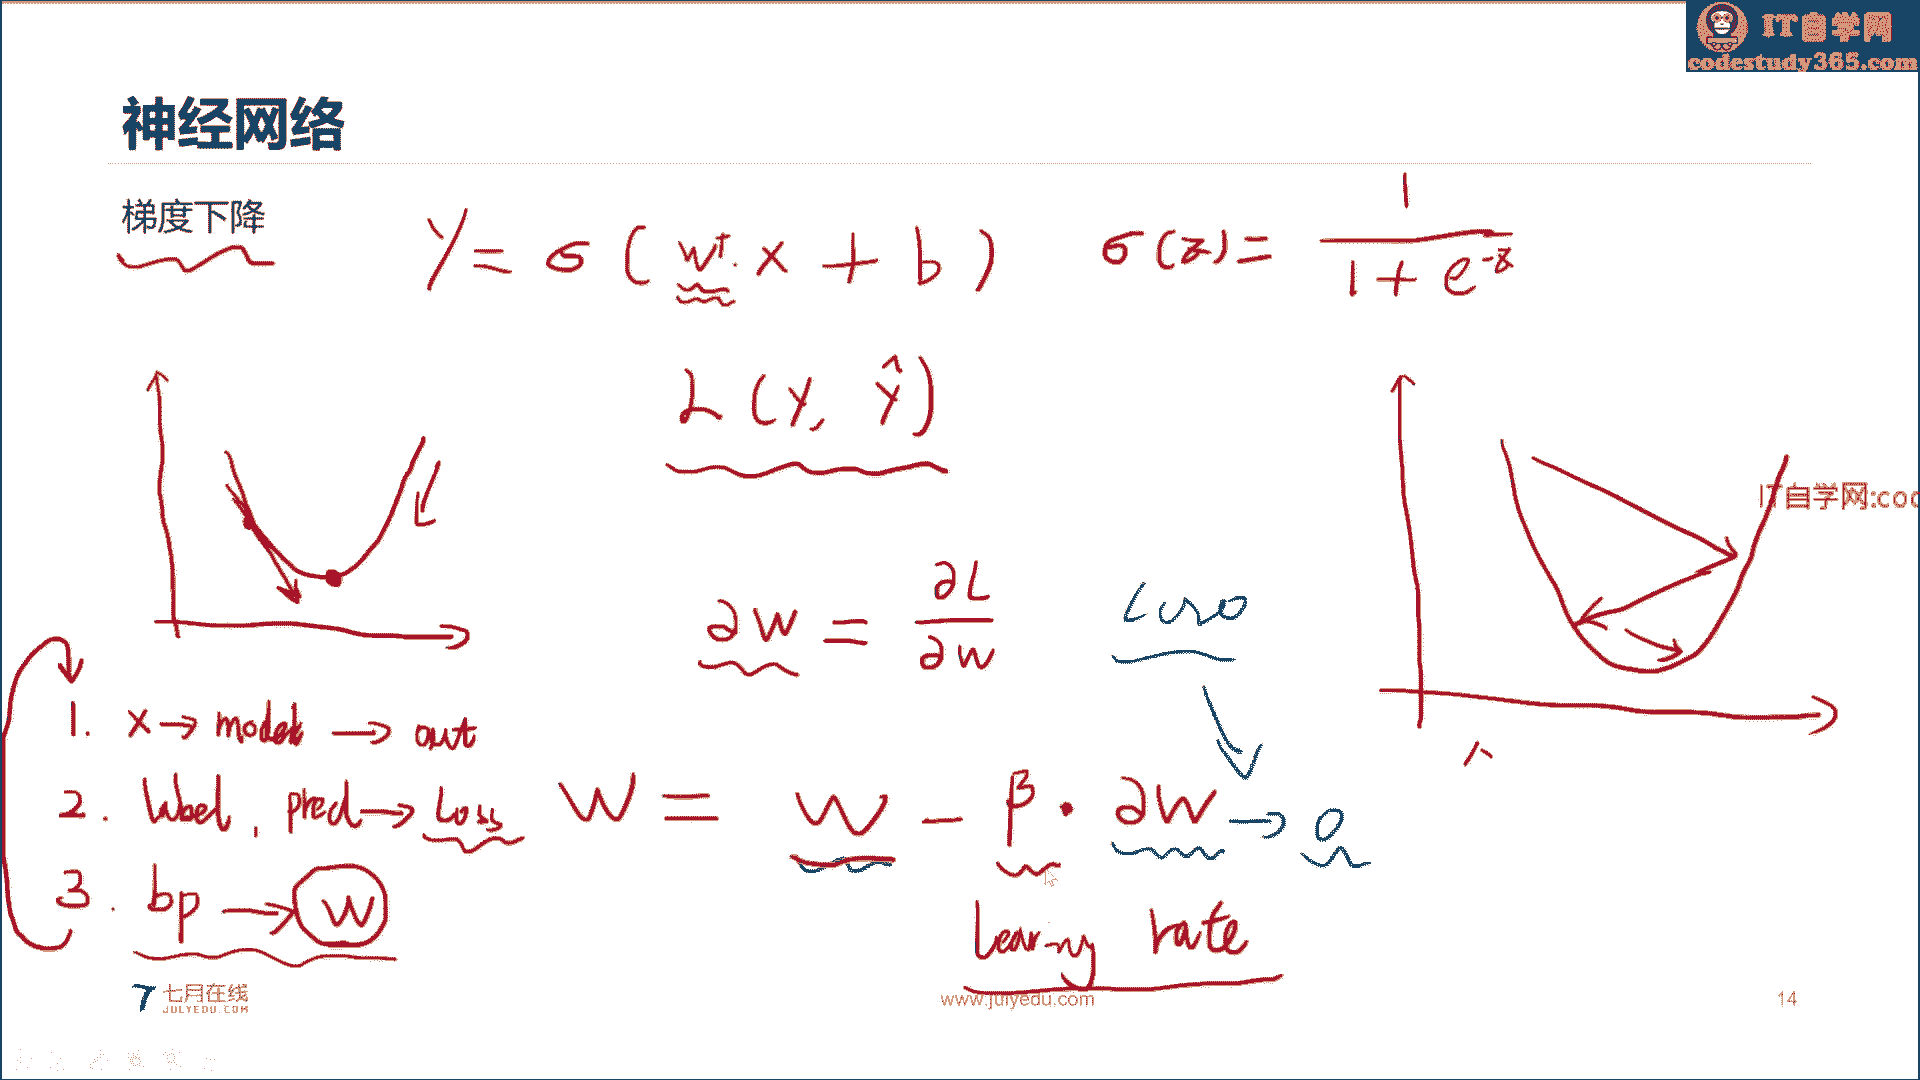 IT自学网
codestudy365.com
神经网络
梯度下降
Y = σ ( wᵀ · x + b )
σ(z) = 1 / (1 + e^{-z})
L (Y, Ŷ)
IT自学网:cod
∂w = ∂L / ∂w
1. x → model → out
2. label, pred → Loss
w = w - β · ∂w → 0
3. bp → w
learning rate
七月在线
JULYEDU.COM
www.julyedu.com
14